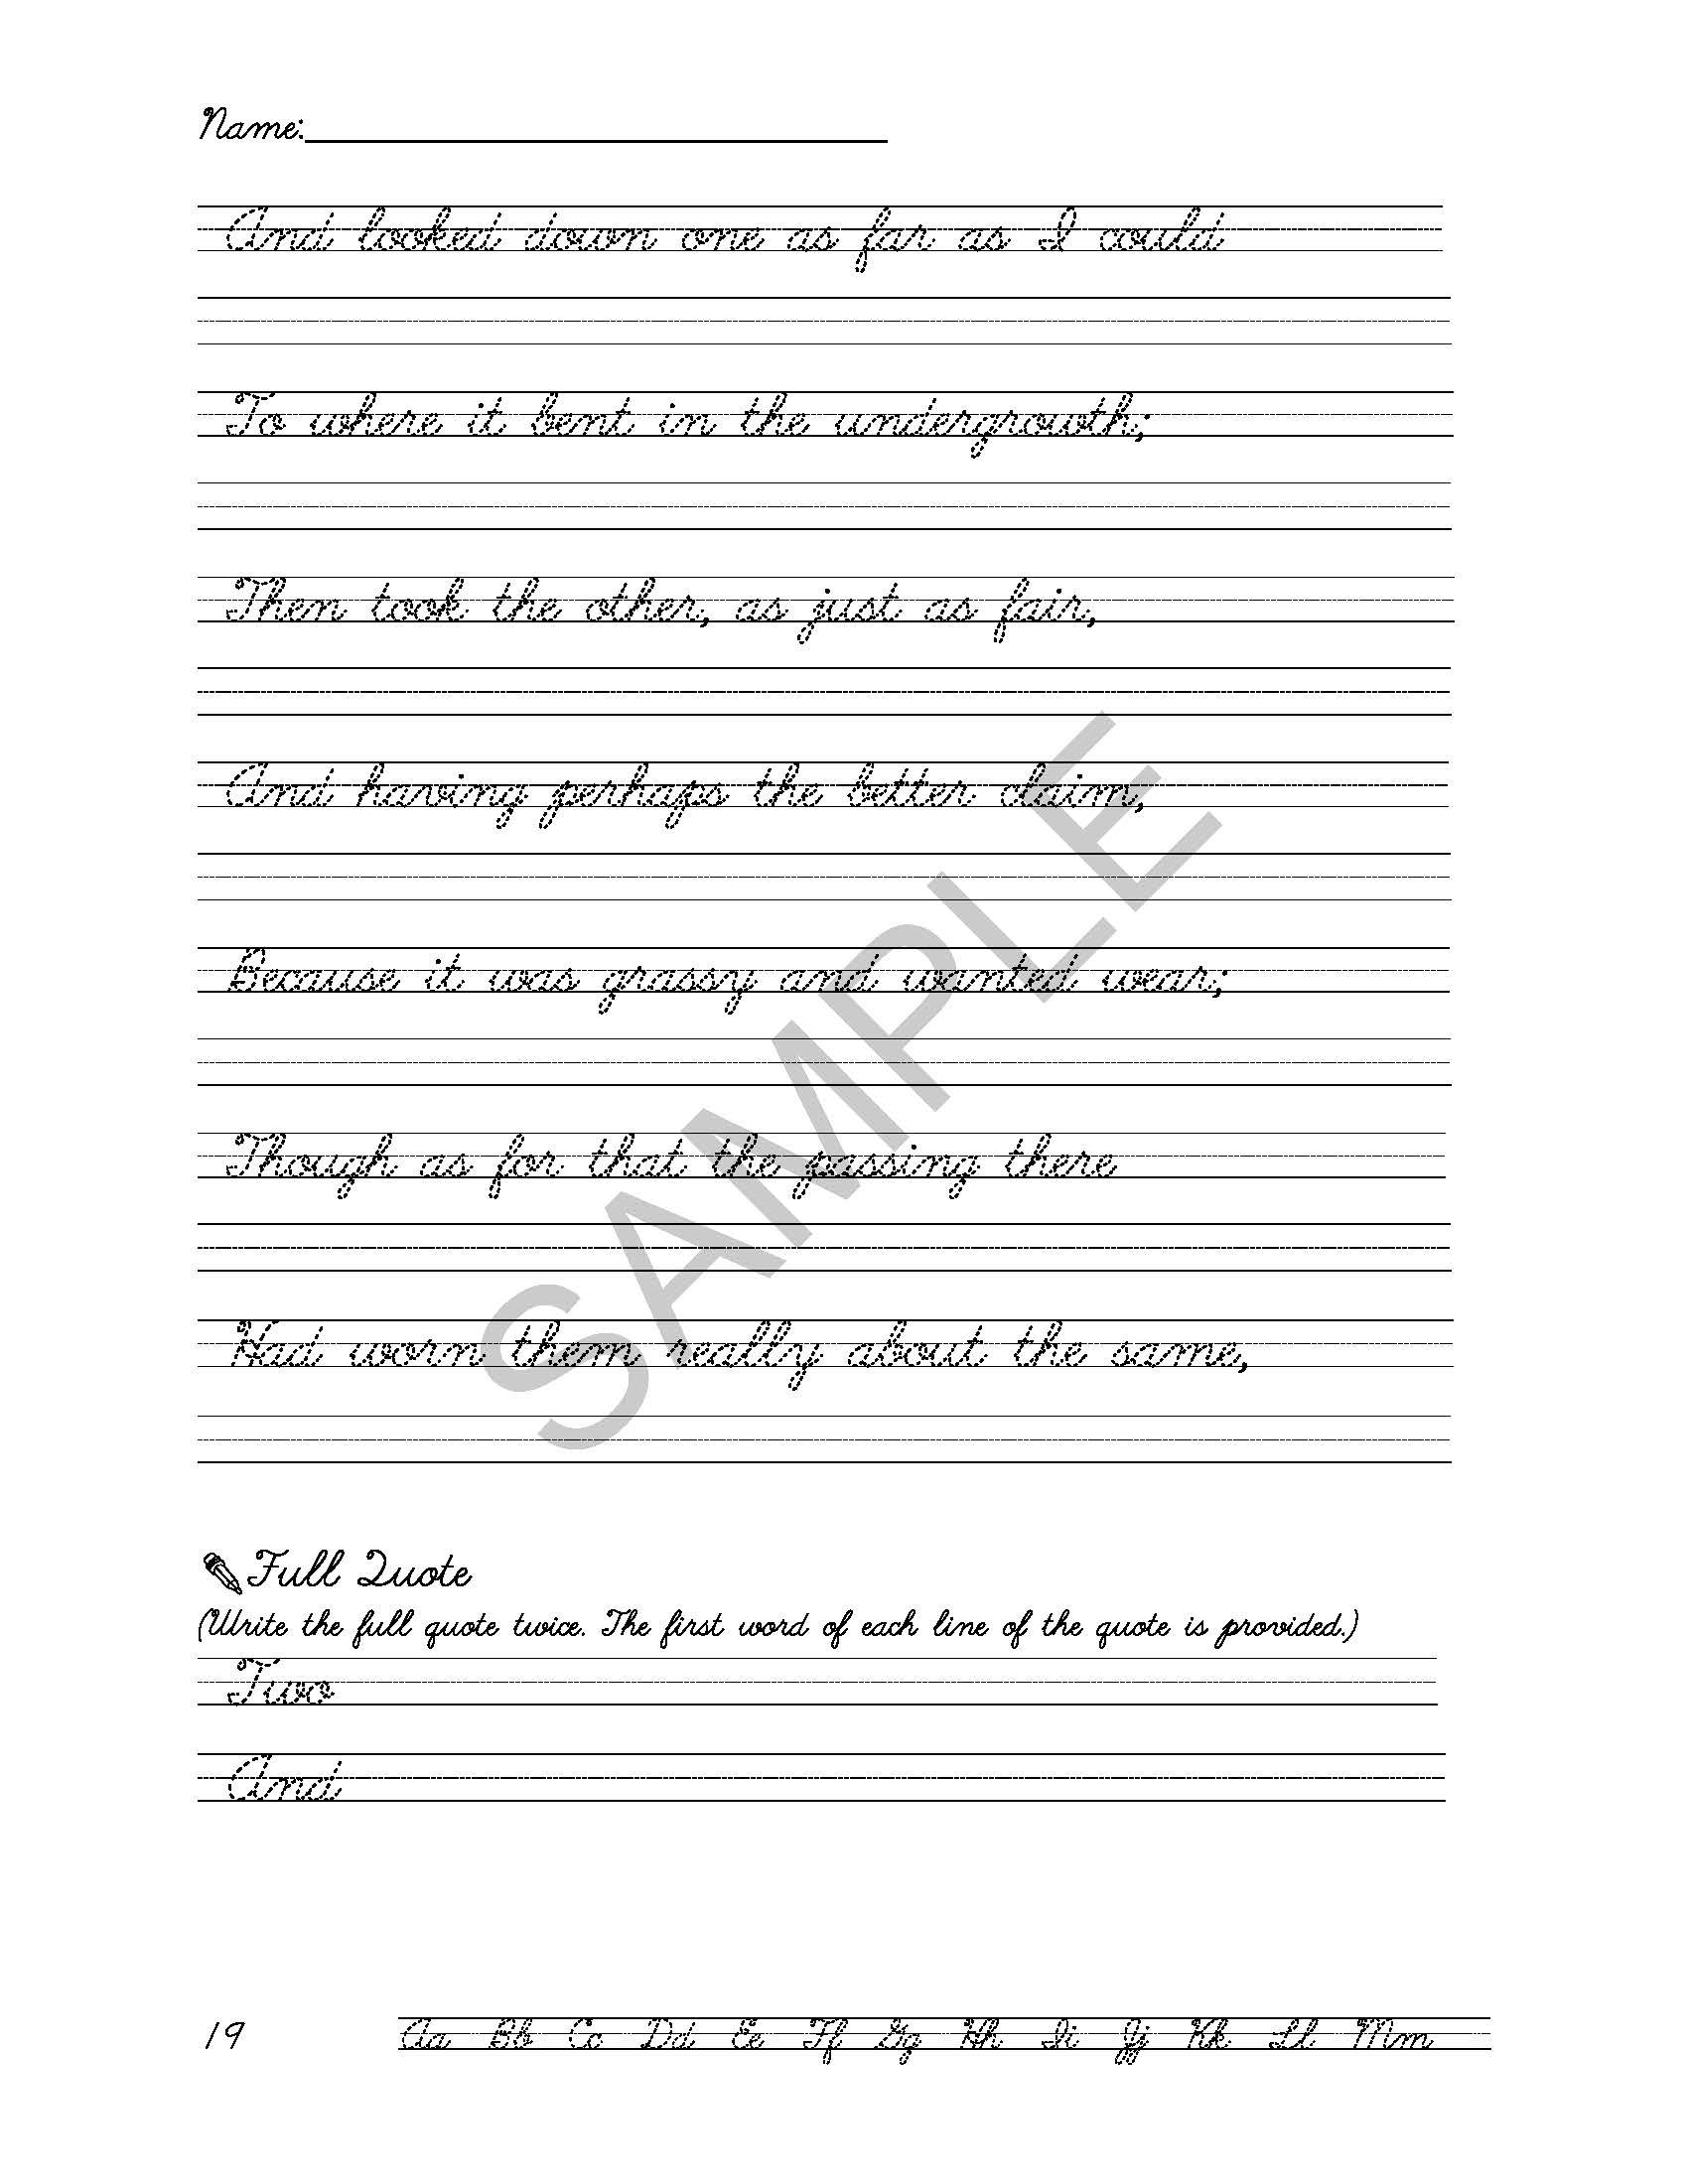 Name:
And looked down one as far as I could
To where it bent in the undergrowth;
Then took the other, as just as fair,
And having perhaps the better claim,
Because it was grassy and wanted wear;
Though as for that the passing there
Had worn them really about the same,
SAMPLE
Full Quote
(Write the full quote twice. The first word of each line of the quote is provided.)
Two
And
19 Aa Bb Cc Dd Ee Ff Gg Hh Ii Jj Kk Ll Mm